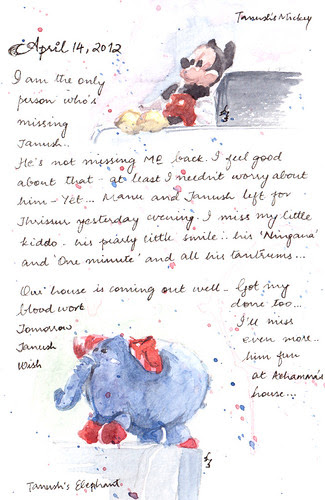 Tanush's Mickey
April 14, 2012
I am the only
person who's
missing
Tanush...
He's not missing me back. I feel good
about that - at least I needn't worry about
him - Yet... Manu and Tanush left for
Thrissur yesterday evening. I miss my little
kiddo. his pearly little smile.. his 'Ningana'
and 'One minute' and all his tantrums...
Our house is coming out well.. Got my
blood work done too...
Tomorrow I'll miss
Tanush even more..
Wish him fun
at Achamma's
house...
Tanush's Elephant